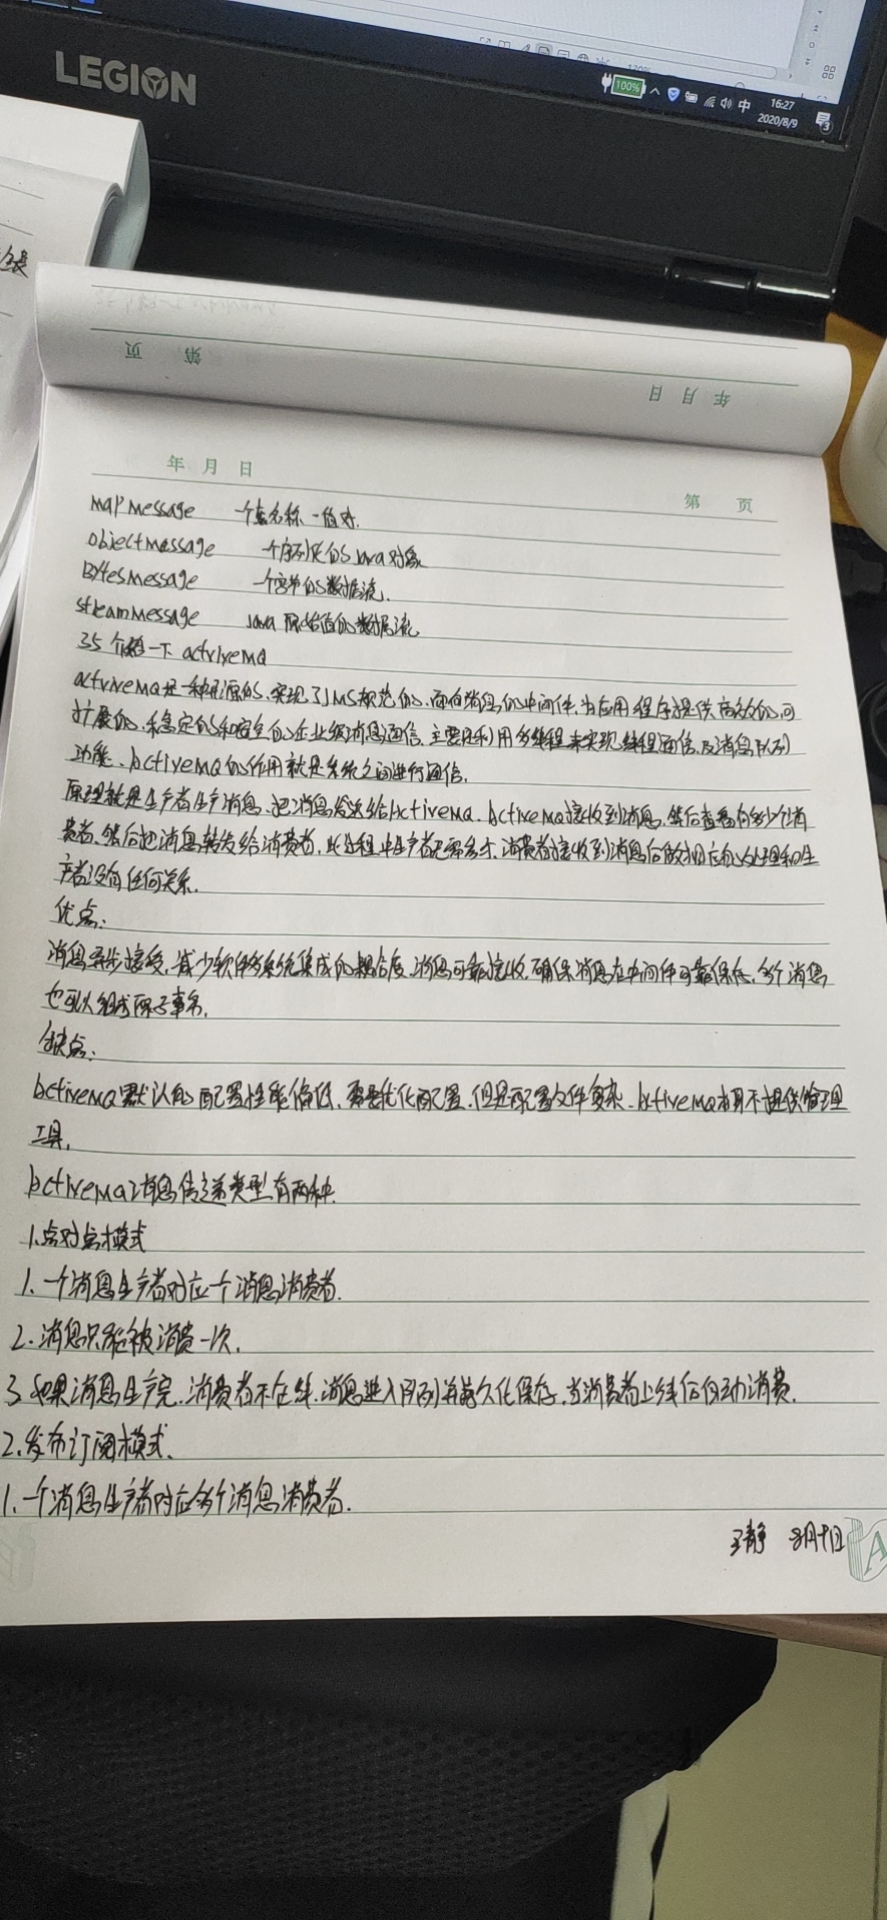 LEGION
100%
中
16:27
2020/8/9
3
第 页
年 月 日
年 月 日
第 页
MapMessage 一个套名称-值对.
ObjectMessage 一个序列化的Java对象
BytesMessage 一个字节的数据流.
StreamMessage Java原始值的数据流
35 介绍一下 activeMQ
activeMQ是一种开源的、实现了JMS规范的、面向消息的中间件,为应用程序提供高效的、可
扩展的、稳定的和安全的企业级消息通信,主要是利用多线程来实现线程通信,及消息队列
功能、activeMQ的作用就是系统之间进行通信.
原理就是生产者生产消息、把消息发送给activeMQ、activeMQ接收到消息、然后查看有多少个消
费者、然后把消息转发给消费者、此过程中生产者无需参与、消费者接收到消息后做相应的处理和生
产者没有任何关系.
优点:
消息异步接受,减少软件多系统集成的耦合度、消息可靠接收,确保消息在中间件可靠保存,多个消息
也可以组成原子事务.
缺点:
activeMQ默认的配置性能偏低,需要优化配置,但是配置文件复杂、activeMQ本身不提供管理
工具,
activeMQ消息传递类型有两种.
1.点对点模式
1.一个消息生产者对应一个消息消费者.
2.消息只能被消费一次.
3.如果消息生产完,消费者不在线,消息进入队列并持久化保存,当消费者上线后自动消费.
2.发布订阅模式.
1.一个消息生产者对应多个消息消费者.
王静 8月9日
A